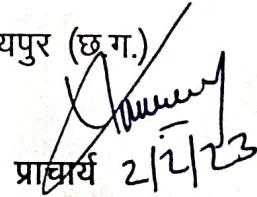 यपुर (छ.ग.)
प्राचार्य 2/2/23